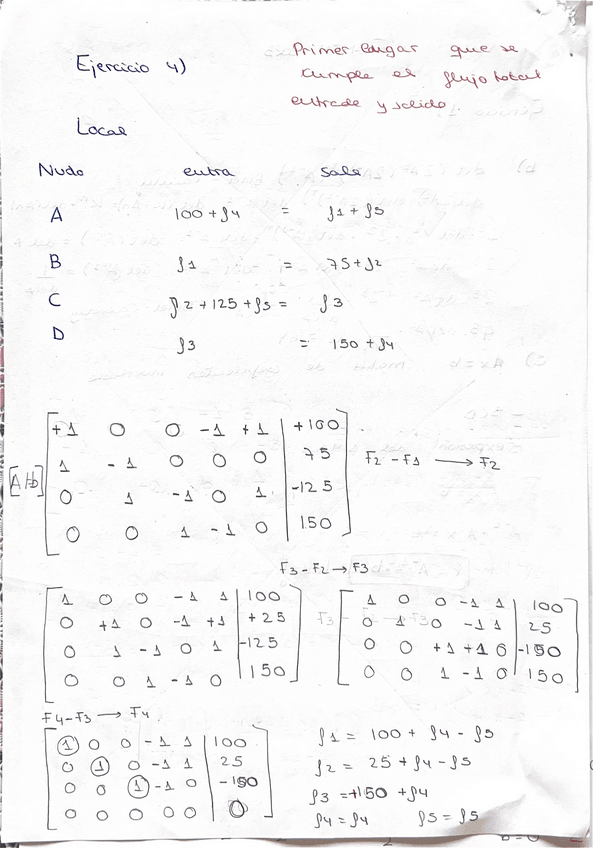 Ejercicio 4)
Primer lugar que se
cumple el flujo total
entrada y salida.
Local
Nudo entra sale
A 100 + f4 = f1 + f5
B f1 = 75 + f2
C f2 + 125 + f5 = f3
D f3 = 150 + f4
[A|b]
+1 0 0 -1 +1 | +100
1 -1 0 0 0 | 75
0 1 -1 0 1 | -125
0 0 1 -1 0 | 150
F2 - F1 → F2
F3 - F2 → F3
1 0 0 -1 1 | 100
0 +1 0 -1 +1 | +25
0 1 -1 0 1 | -125
0 0 1 -1 0 | 150
1 0 0 -1 1 | 100
0 1 0 -1 1 | 25
0 0 +1 +1 0 | -150
0 0 1 -1 0 | 150
F4 - F3 → F4
1 0 0 -1 1 | 100
0 1 0 -1 1 | 25
0 0 1 -1 0 | -150
0 0 0 0 0 | 0
f1 = 100 + f4 - f5
f2 = 25 + f4 - f5
f3 = +150 + f4
f4 = f4 f5 = f5